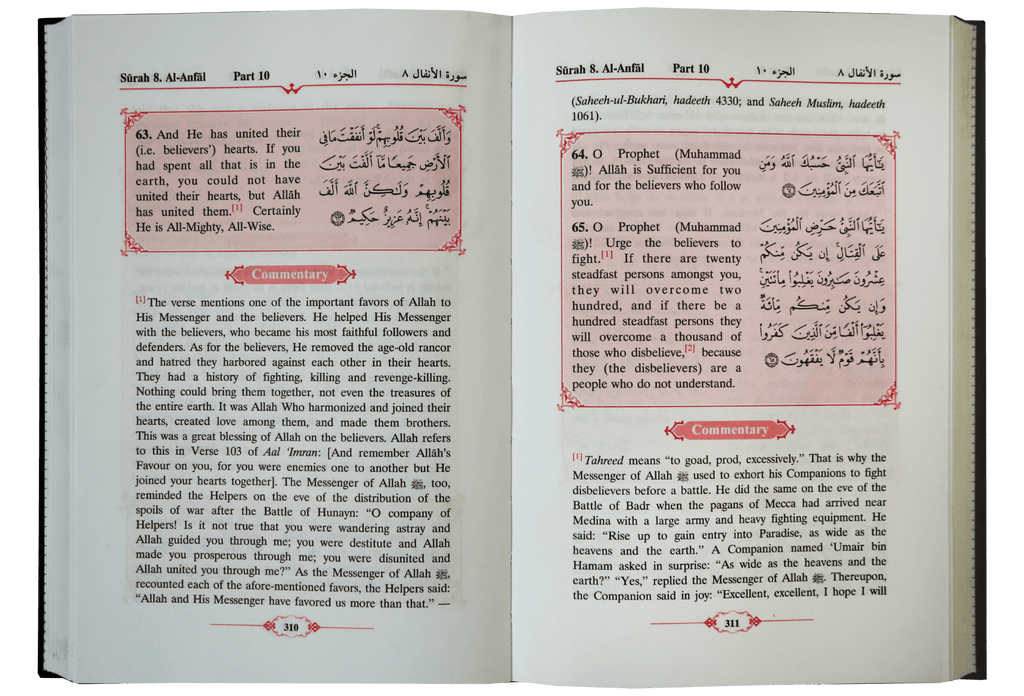 Sūrah 8. Al-Anfāl Part 10 الجزء ١٠ سورة الأنفال ٨
63. And He has united their
(i.e. believers’) hearts. If you
had spent all that is in the
earth, you could not have
united their hearts, but Allāh
has united them.[1] Certainly
He is All-Mighty, All-Wise.
وَأَلَّفَ بَيْنَ قُلُوبِهِمْ لَوْ أَنفَقْتَ مَا فِي
الْأَرْضِ جَمِيعًا مَّا أَلَّفْتَ بَيْنَ
قُلُوبِهِمْ وَلَٰكِنَّ اللَّهَ أَلَّفَ
بَيْنَهُمْ إِنَّهُ عَزِيزٌ حَكِيمٌ ٦٣
Commentary
[1] The verse mentions one of the important favors of Allah to
His Messenger and the believers. He helped His Messenger
with the believers, who became his most faithful followers and
defenders. As for the believers, He removed the age-old rancor
and hatred they harbored against each other in their hearts.
They had a history of fighting, killing and revenge-killing.
Nothing could bring them together, not even the treasures of
the entire earth. It was Allah Who harmonized and joined their
hearts, created love among them, and made them brothers.
This was a great blessing of Allah on the believers. Allah refers
to this in Verse 103 of Aal ‘Imran: [And remember Allāh’s
Favour on you, for you were enemies one to another but He
joined your hearts together]. The Messenger of Allah ﷺ, too,
reminded the Helpers on the eve of the distribution of the
spoils of war after the Battle of Hunayn: “O company of
Helpers! Is it not true that you were wandering astray and
Allah guided you through me; you were destitute and Allah
made you prosperous through me; you were disunited and
Allah united you through me?” As the Messenger of Allah ﷺ,
recounted each of the afore-mentioned favors, the Helpers said:
“Allah and His Messenger have favored us more than that.” —
310
Sūrah 8. Al-Anfāl Part 10 الجزء ١٠ سورة الأنفال ٨
(Saheeh-ul-Bukhari, hadeeth 4330; and Saheeh Muslim, hadeeth
1061).
64. O Prophet (Muhammad
ﷺ)! Allāh is Sufficient for you
and for the believers who follow
you.
يَٰأَيُّهَا النَّبِيُّ حَسْبُكَ اللَّهُ وَمَنِ
اتَّبَعَكَ مِنَ الْمُؤْمِنِينَ ٦٤
65. O Prophet (Muhammad
ﷺ)! Urge the believers to
fight.[1] If there are twenty
steadfast persons amongst you,
they will overcome two
hundred, and if there be a
hundred steadfast persons they
will overcome a thousand of
those who disbelieve,[2] because
they (the disbelievers) are a
people who do not understand.
يَٰأَيُّهَا النَّبِيُّ حَرِّضِ الْمُؤْمِنِينَ
عَلَى الْقِتَالِ إِن يَكُن مِّنكُمْ
عِشْرُونَ صَٰبِرُونَ يَغْلِبُوا مِائَتَيْنِ
وَإِن يَكُن مِّنكُم مِّائَةٌ
يَغْلِبُوا أَلْفًا مِّنَ الَّذِينَ كَفَرُوا
بِأَنَّهُمْ قَوْمٌ لَّا يَفْقَهُونَ ٦٥
Commentary
[1] Tahreed means “to goad, prod, excessively.” That is why the
Messenger of Allah ﷺ used to exhort his Companions to fight
disbelievers before a battle. He did the same on the eve of the
Battle of Badr when the pagans of Mecca had arrived near
Medina with a large army and heavy fighting equipment. He
said: “Rise up to gain entry into Paradise, as wide as the
heavens and the earth.” A Companion named ‘Umair bin
Hamam asked in surprise: “As wide as the heavens and the
earth?” “Yes,” replied the Messenger of Allah ﷺ. Thereupon,
the Companion said in joy: “Excellent, excellent, I hope I will
311